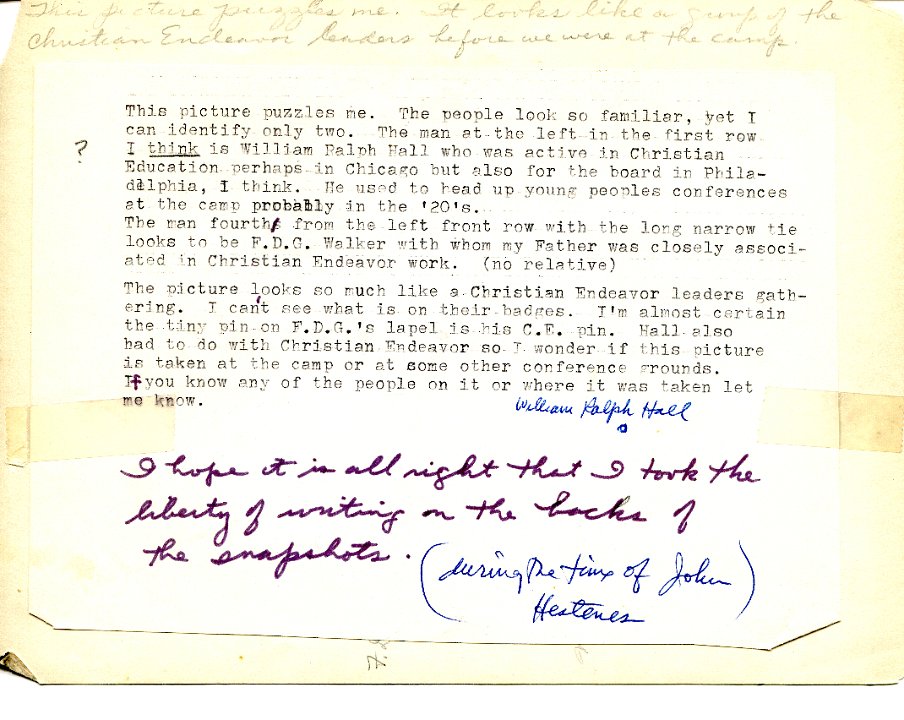 This picture puzzles me. It looks like a group of the
Christian Endeavor leaders before we were at the camp.
This picture puzzles me. The people look so familiar, yet I
can identify only two. The man at the left in the first row
? I think is William Ralph Hall who was active in Christian
Education perhaps in Chicago but also for the board in Phila-
delphia, I think. He used to head up young peoples conferences
at the camp probably in the '20's.
The man fourth from the left front row with the long narrow tie
looks to be F.D.G. Walker with whom my Father was closely associ-
ated in Christian Endeavor work. (no relative)
The picture looks so much like a Christian Endeavor leaders gath-
ering. I can't see what is on their badges. I'm almost certain
the tiny pin on F.D.G.'s lapel is his C.E. pin. Hall also
had to do with Christian Endeavor so I wonder if this picture
is taken at the camp or at some other conference grounds.
If you know any of the people on it or where it was taken let
me know.
William Ralph Hall
I hope it is all right that I took the
liberty of writing on the backs of
the snapshots.
(during the time of John
Hestenes)